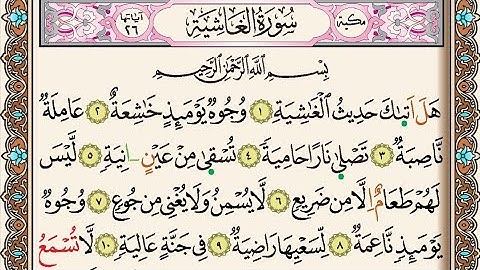 مكية سورة الغاشية آياتها ٢٦
بسم الله الرحمن الرحيم
هَلْ أَتَىٰكَ حَدِيثُ الْغَٰشِيَةِ ١ وُجُوهٌ يَوْمَئِذٍ خَٰشِعَةٌ ٢ عَامِلَةٌ
نَّاصِبَةٌ ٣ تَصْلَىٰ نَارًا حَامِيَةً ٤ تُسْقَىٰ مِنْ عَيْنٍ ءَانِيَةٍ ٥ لَّيْسَ
لَهُمْ طَعَامٌ إِلَّا مِن ضَرِيعٍ ٦ لَّا يُسْمِنُ وَلَا يُغْنِي مِن جُوعٍ ٧ وُجُوهٌ
يَوْمَئِذٍ نَّاعِمَةٌ ٨ لِّسَعْيِهَا رَاضِيَةٌ ٩ فِي جَنَّةٍ عَالِيَةٍ ١٠ لَّا تَسْمَعُ